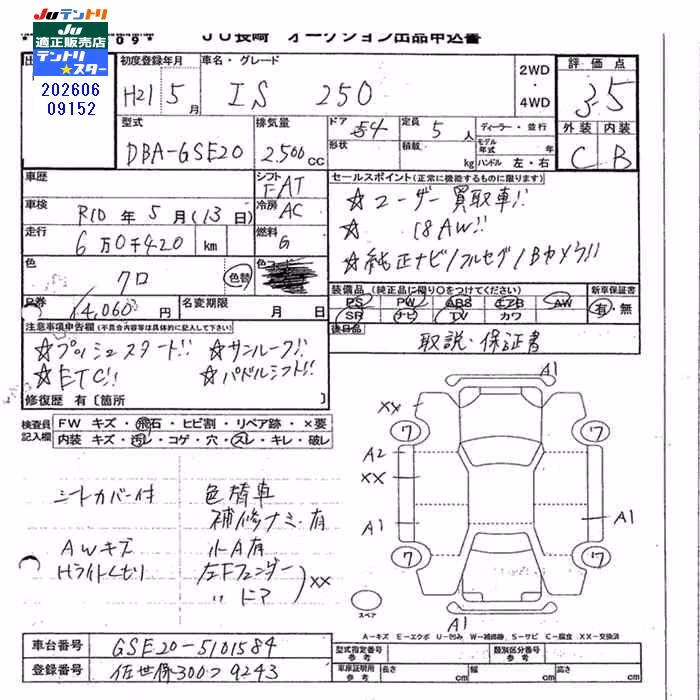 JUテントリ
JU
適正販売店
テントリ
★スター
202606
09152
JU長崎 オークション出品申込書
初度登録年月 車名・グレード 2WD・4WD 評価点
H21年5月 IS 250 3.5
型式 排気量 ドア 54 定員 5人 ディーラー・並行 外装 内装
DBA-GSE20 2.500cc 形状 積載 kg モデル年式 年 ハンドル 左・右 C B
車歴 シフト FAT セールスポイント(正常に機能するものに限ります)
車検 R10年5月(13日) 冷房 AC ☆ユーザー買取車!!
走行 6万0千420 km 燃料 G ☆ 18AW!!
☆純正ナビ/フルセグ/Bカメラ!!
色 クロ 色替 色コード
装備品(純正品に限り○をつけてください) 新車保証書
PS PW ABS エアB AW 有・無
SR ナビ TV カワ
R券 14,060円 名変期限 月 日
後日品 取説・保証書
注意事項申告欄(不具合内容等は具体的に記入して下さい)
☆プッシュスタート!! ☆サンルーフ!!
☆ETC!! ☆パドルシフト!!
修復歴 有〔箇所 〕
検査員記入欄 FW キズ・飛石・ヒビ割・リペア跡・×要
内装 キズ・汚レ・コゲ・穴・スレ・キレ・破レ
シートカバー付 色替車
補修ナミ有
AWキズ 小A有
Hライトくもり 左Fフェンダー
〃 ドア ) XX
A1
XX
ワ ワ
A2
XX
A1 A1
ワ ワ
スペア
A1
A−キズ E−エクボ U−凹み W−補修跡 S−サビ C−腐食 XX−交換済
車台番号 GSE20-5101584
登録番号 佐世保300つ9243
型式指定番号 参考 類別区分番号 参考
車庫証明用 参考 長さ cm 幅 cm 高さ cm